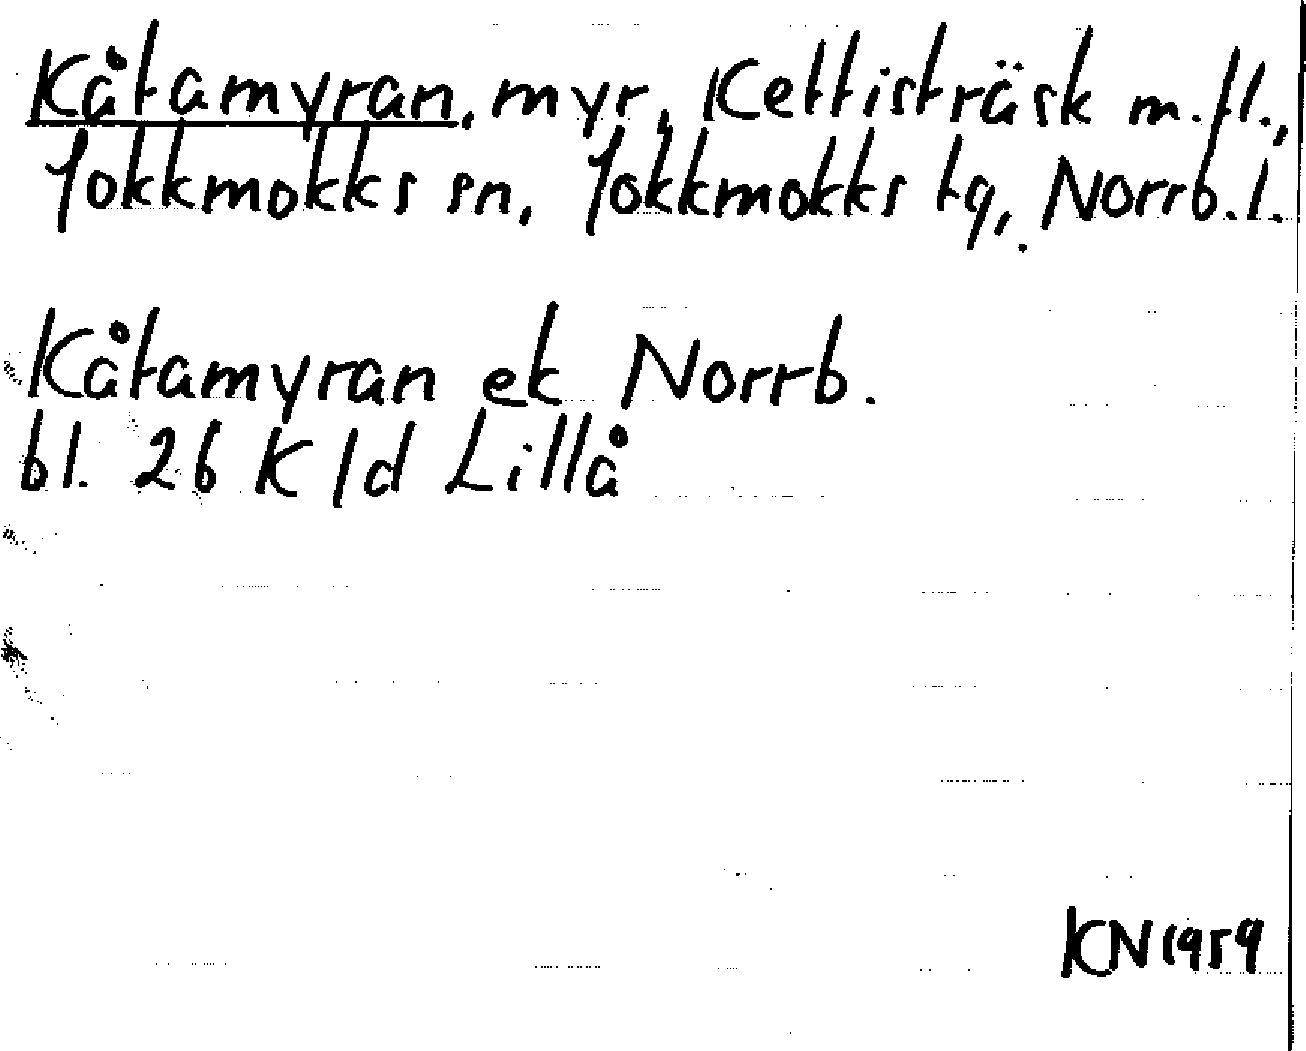 Kåtamyran, myr, Kettisträsk m.fl.,
Jokkmokks sn, Jokkmokks tg, Norrb.l.
Kåtamyran ek Norrb.
bl. 26 K/d Lillå
KN1959